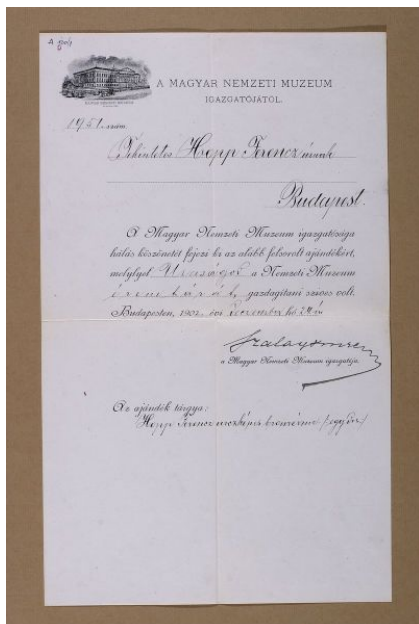 A MAGYAR NEMZETI MUZEUM
IGAZGATÓJÁTÓL.
1951. szám.
Tekintetes Hopp Ferencz úrnak
Budapest.
A Magyar Nemzeti Muzeum igazgatósága
hálás köszönetét fejezi ki az alább felsorolt ajándékért,
melylyel Uraságod a Nemzeti Muzeum
éremtárát gazdagitani szives volt.
Budapesten, 1902. évi December hó 24én
Szalay Imre
a Magyar Nemzeti Muzeum igazgatója.
Az ajándék tárgya:
Hopp Ferencz arczképes bronzérme